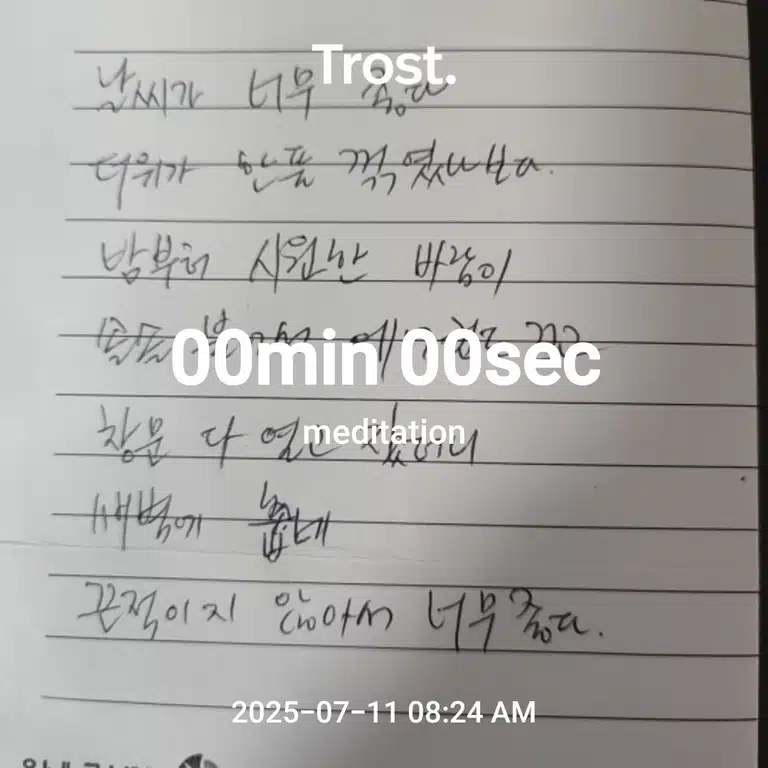 Trost.
날씨가 너무 좋다
더위가 한풀 꺾였나보다.
밤부터 시원한 바람이
솔솔 에어컨 끄고
00min 00sec
창문 다 열고 잤더니
meditation
새벽에 춥네
끈적이지 않아서 너무좋다.
2025-07-11 08:24 AM